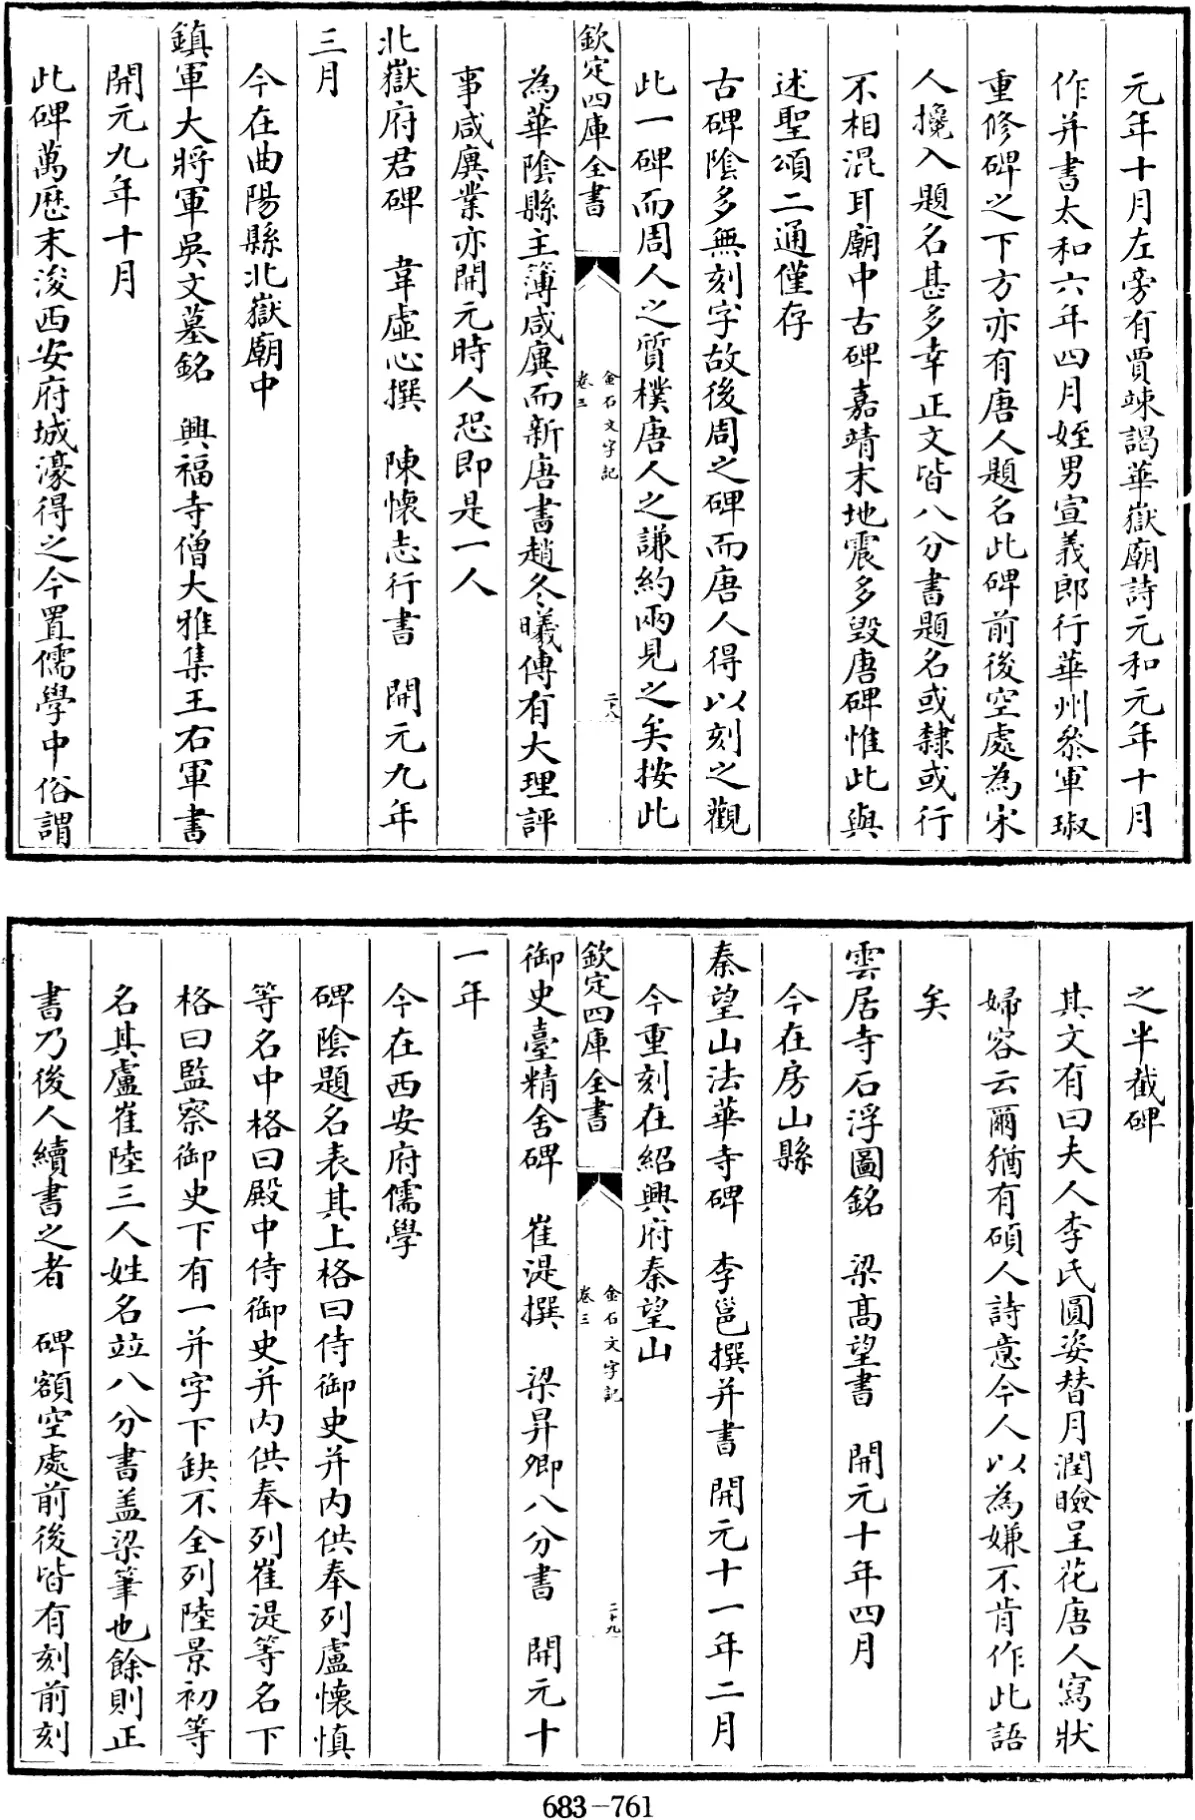 元年十月左旁有賈竦謁華嶽廟詩元和元年十月
作并書太和六年四月姪男宣義郎行華州叅軍琡
重修碑之下方亦有唐人題名此碑前後空處為宋
人攙入題名甚多幸正文皆八分書題名或隸或行
不相混耳廟中古碑嘉靖末地震多毀唐碑惟此與
述聖頌二通僅存
古碑陰多無刻字故後周之碑而唐人得以刻之觀
此一碑而周人之質樸唐人之謙約兩見之矣按此
欽定四庫全書
金石文字記
卷三
二十八
為華陰縣主簿咸廙而新唐書趙冬曦傳有大理評
事咸廙業亦開元時人恐即是一人
北嶽府君碑 韋虛心撰 陳懷志行書 開元九年
三月
今在曲陽縣北嶽廟中
鎮軍大將軍吳文墓銘 興福寺僧大雅集王右軍書
開元九年十月
此碑萬歷末浚西安府城濠得之今置儒學中俗謂
之半截碑
其文有曰夫人李氏圓姿替月潤瞼呈花唐人寫狀
婦容云爾猶有碩人詩意今人以為嫌不肯作此語
矣
雲居寺石浮圖銘 梁高望書 開元十年四月
今在房山縣
秦望山法華寺碑 李邕撰并書 開元十一年二月
今重刻在紹興府秦望山
欽定四庫全書
金石文字記
卷三
二十九
御史臺精舍碑 崔湜撰 梁昇卿八分書 開元十
一年
今在西安府儒學
碑陰題名表其上格曰侍御史并内供奉列盧懷慎
等名中格曰殿中侍御史并内供奉列崔湜等名下
格曰監察御史下有一并字下缺不全列陸景初等
名其盧崔陸三人姓名竝八分書盖梁筆也餘則正
書乃後人續書之者 碑額空處前後皆有刻前刻
683-761